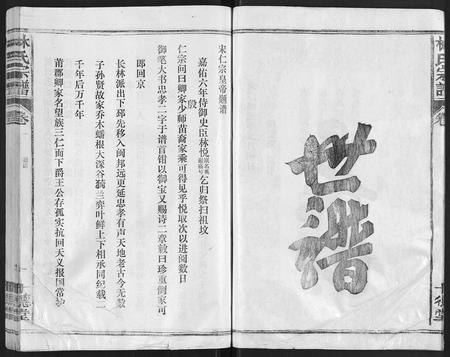 世谱
宋仁宗皇帝题谱
嘉佑六年侍御史臣林悦乞归祭扫祖坟
仁宗问曰卿家少师苗裔家乘可得见乎悦取次以进阅数日
御笔大书忠孝二字于谱首钳以御宝又赐诗二章敕曰珍重倒家可
郎回京
长林派出下邳先移入闽邦远更延忠孝有声天地老古今无数
子孙贤故家乔木蟠根大深谷猗兰奕叶鲜上下相承同纪载一
千年后万千年
莆郡卿家名望族三仁而下爵王公存孤实抗回天义报国常
林氏宗谱
卷
德堂